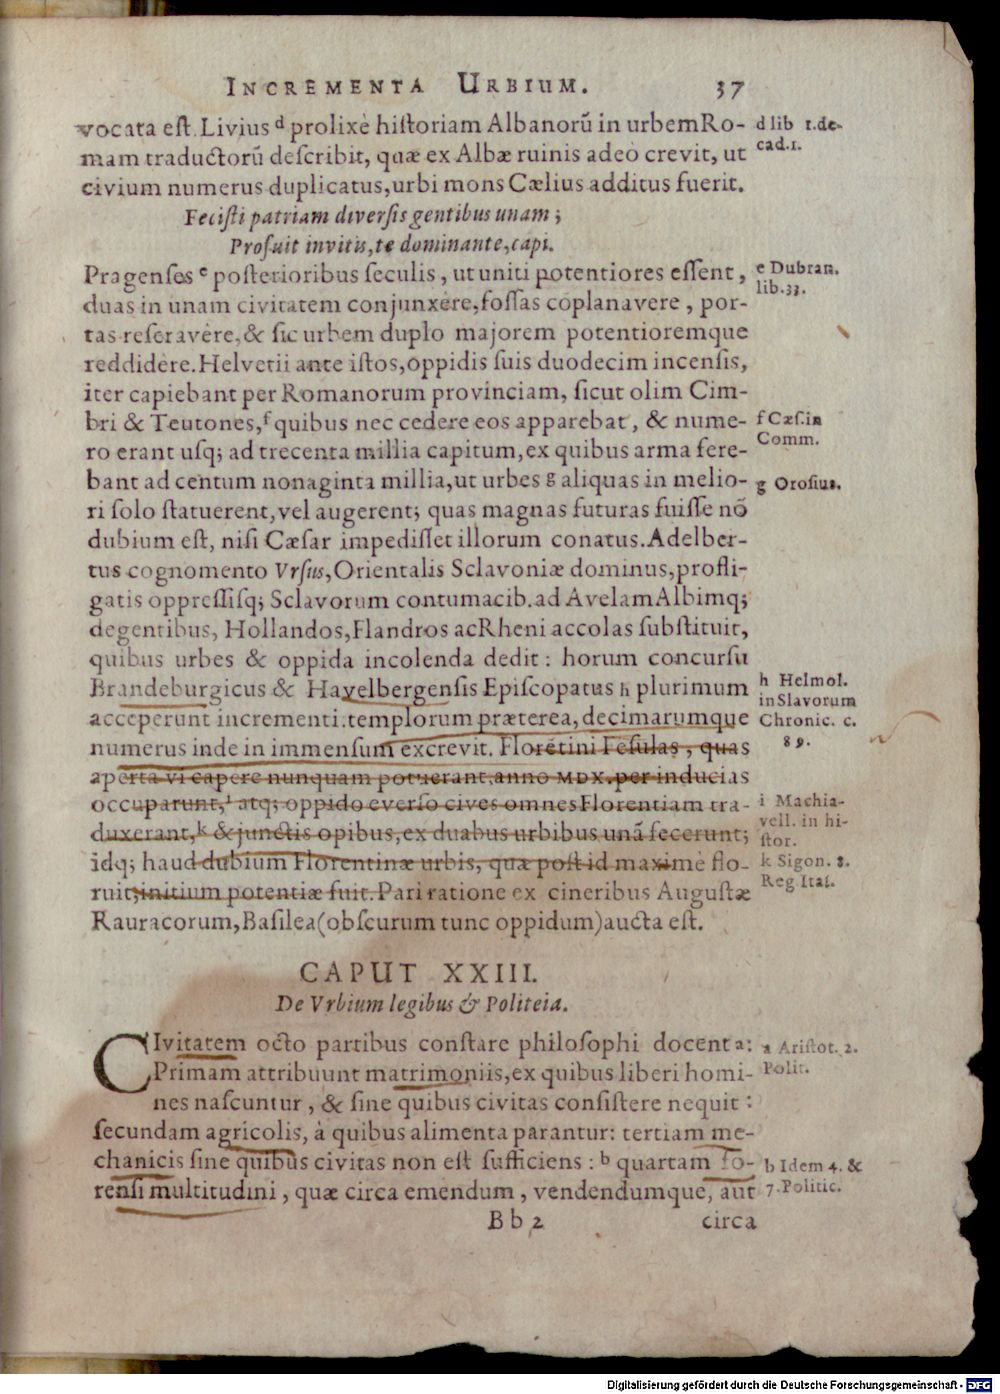 INCREMENTA URBIUM. 37
vocata est. Livius d prolixè historiam Albanorū in urbem Ro-
mam traductorū describit, quæ ex Albæ ruinis adeò crevit, ut
civium numerus duplicatus, urbi mons Cælius additus fuerit.
d lib 1. de-
cad. 1.
Fecisti patriam diversis gentibus unam;
Profuit invitis, te dominante, capi.
Pragenses e posterioribus seculis, ut uniti potentiores essent,
duas in unam civitatem conjunxêre, fossas coplanavere, por-
tas reseravêre, & sic urbem duplo majorem potentioremque
reddidêre. Helvetii ante istos, oppidis suis duodecim incensis,
iter capiebant per Romanorum provinciam, sicut olim Cim-
bri & Teutones, f quibus nec cedere eos apparebat, & nume-
ro erant usq; ad trecenta millia capitum, ex quibus arma fere-
bant ad centum nonaginta millia, ut urbes g aliquas in melio-
ri solo statuerent, vel augerent; quas magnas futuras fuisse nō
dubium est, nisi Cæsar impedisset illorum conatus. Adelber-
tus cognomento Vrsus, Orientalis Sclavoniæ dominus, profli-
gatis oppressisq; Sclavorum contumacib. ad Avelam Albimq;
degentibus, Hollandos, Flandros ac Rheni accolas substituit,
quibus urbes & oppida incolenda dedit: horum concursu
Brandeburgicus & Havelbergensis Episcopatus h plurimum
acceperunt incrementi. templorum præterea, decimarumque
numerus inde in immensum excrevit. Floretini Fesulas, quas
aperta vi capere nunquam potuerant, anno MDX. per inducias
occuparunt, i atq; oppido everso cives omnes Florentiam tra-
duxerant, k & junctis opibus, ex duabus urbibus unā fecerunt;
idq; haud dubium Florentinæ urbis, quæ post id maximè flo-
ruit, initium potentiæ fuit. Pari ratione ex cineribus Augustæ
Rauracorum, Basilea (obscurum tunc oppidum) aucta est.
e Dubran.
lib. 33.
f Cæs. in
Comm.
g Orosius.
h Helmol.
in Slavorum
Chronic. c.
89.
i Machia-
vell. in hi-
stor.
k Sigon. 8.
Reg Ital.
CAPUT XXIII.
De Vrbium legibus & Politeia.
CIvitatem octo partibus constare philosophi docent a:
Primam attribuunt matrimoniis, ex quibus liberi homi-
nes nascuntur, & sine quibus civitas consistere nequit:
secundam agricolis, à quibus alimenta parantur: tertiam me-
chanicis sine quibus civitas non est sufficiens: b quartam fo-
rensi multitudini, quæ circa emendum, vendendumque, aut
a Aristot. 2.
Polit.
b Idem 4. &
7. Politic.
Bb 2 circa
Digitalisierung gefördert durch die Deutsche Forschungsgemeinschaft - DFG